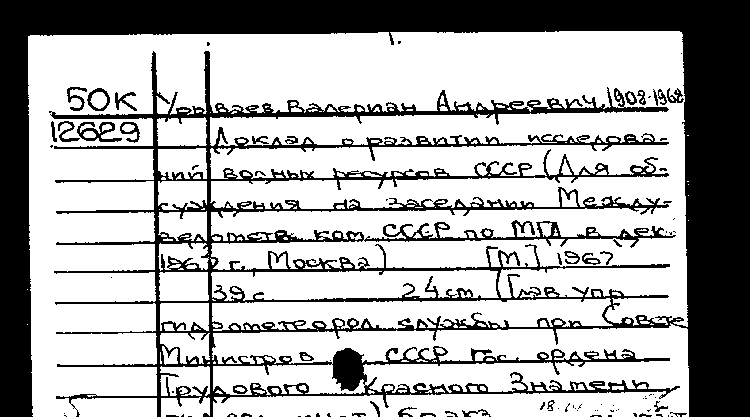 1.
50К Урываев, Валериан Андреевич, 1908-1968
12629 Доклад о развитии исследова-
ний водных ресурсов СССР (Для об-
суждения на заседании Между-
ведомств. ком. СССР по МГД в дек.
1967 г., Москва) [М.], 1967
39 с. 24 см. (Глав. упр.
гидрометеорол. службы при Совете
Министров СССР Гос. ордена
Трудового Красного Знамени